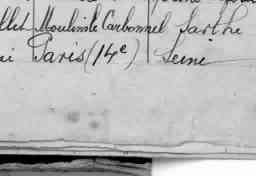 llet Moulin le Carbonnel Sarthe
Paris (14e) Seine